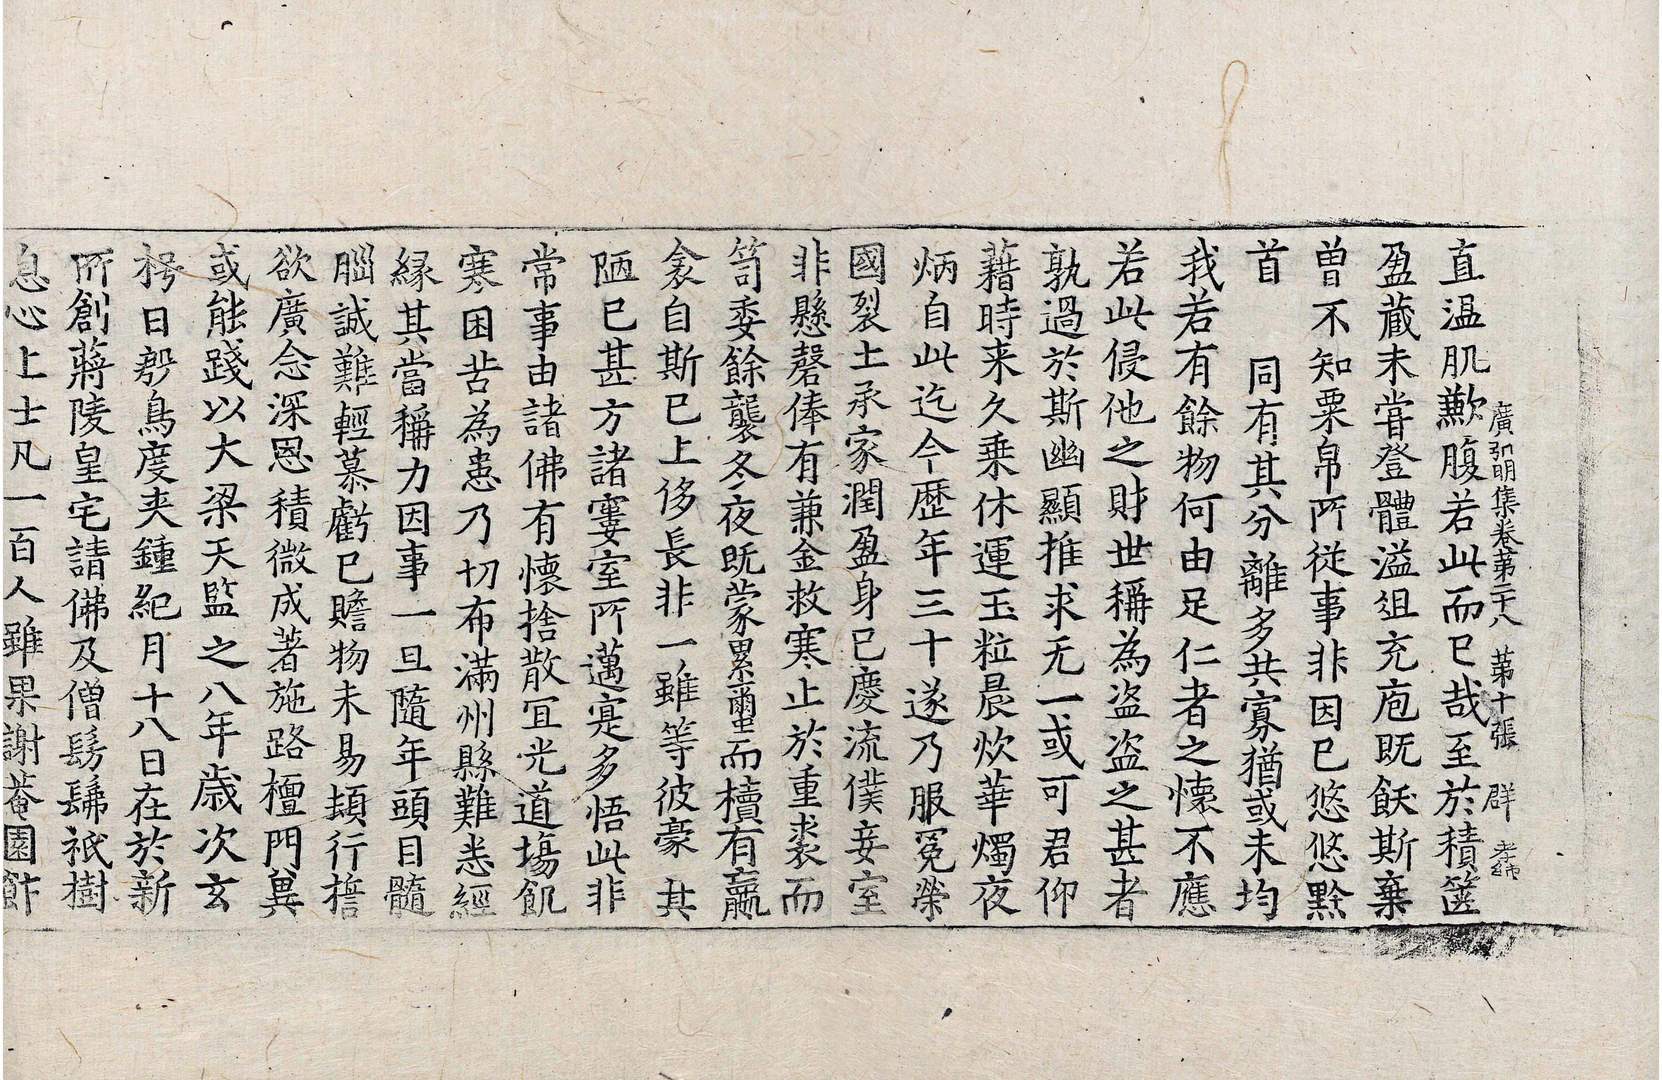 廣弘明集卷苐二十八 苐十張 群
直溫肌歉腹若此而已哉至於積篋
盈藏未甞登體溢俎充庖既飫斯棄
曽不知粟帛所從事非因已悠悠黔
首 同有其分離多共寡猶或未均
我若有餘物何由足仁者之懷不應
若此侵他之財世稱為盜盜之甚者
孰過於斯幽顯推求无一或可君仰
藉時来久乗休運玉粒晨炊華燭夜
炳自此迄今歷年三十遂乃服冕榮
國裂土承家潤盈身已慶流僕妾室
非懸磬俸有兼金救寒止於重裘而
笥委餘襲冬夜既蒙累璽而櫝有羸
衾自斯已上侈長非一雖等彼豪其
陋已甚方諸窶室所邁寔多悟此非
常事由諸佛有懷捨散冝光道場飢
寒困苦為患乃切布滿州縣難悉經
緣其當稱力因事一旦隨年頭目髓
腦誠難輕慕虧已贍物未易頓行誓
欲廣念深恩積微成著施路檀門冀
或能踐以大梁天監之八年歳次玄
枵日殷鳥度夾鍾紀月十八日在於新
所創蔣陵皇宅請佛及僧髣髴祇樹
息心上士凡一百人雖果謝菴園飰